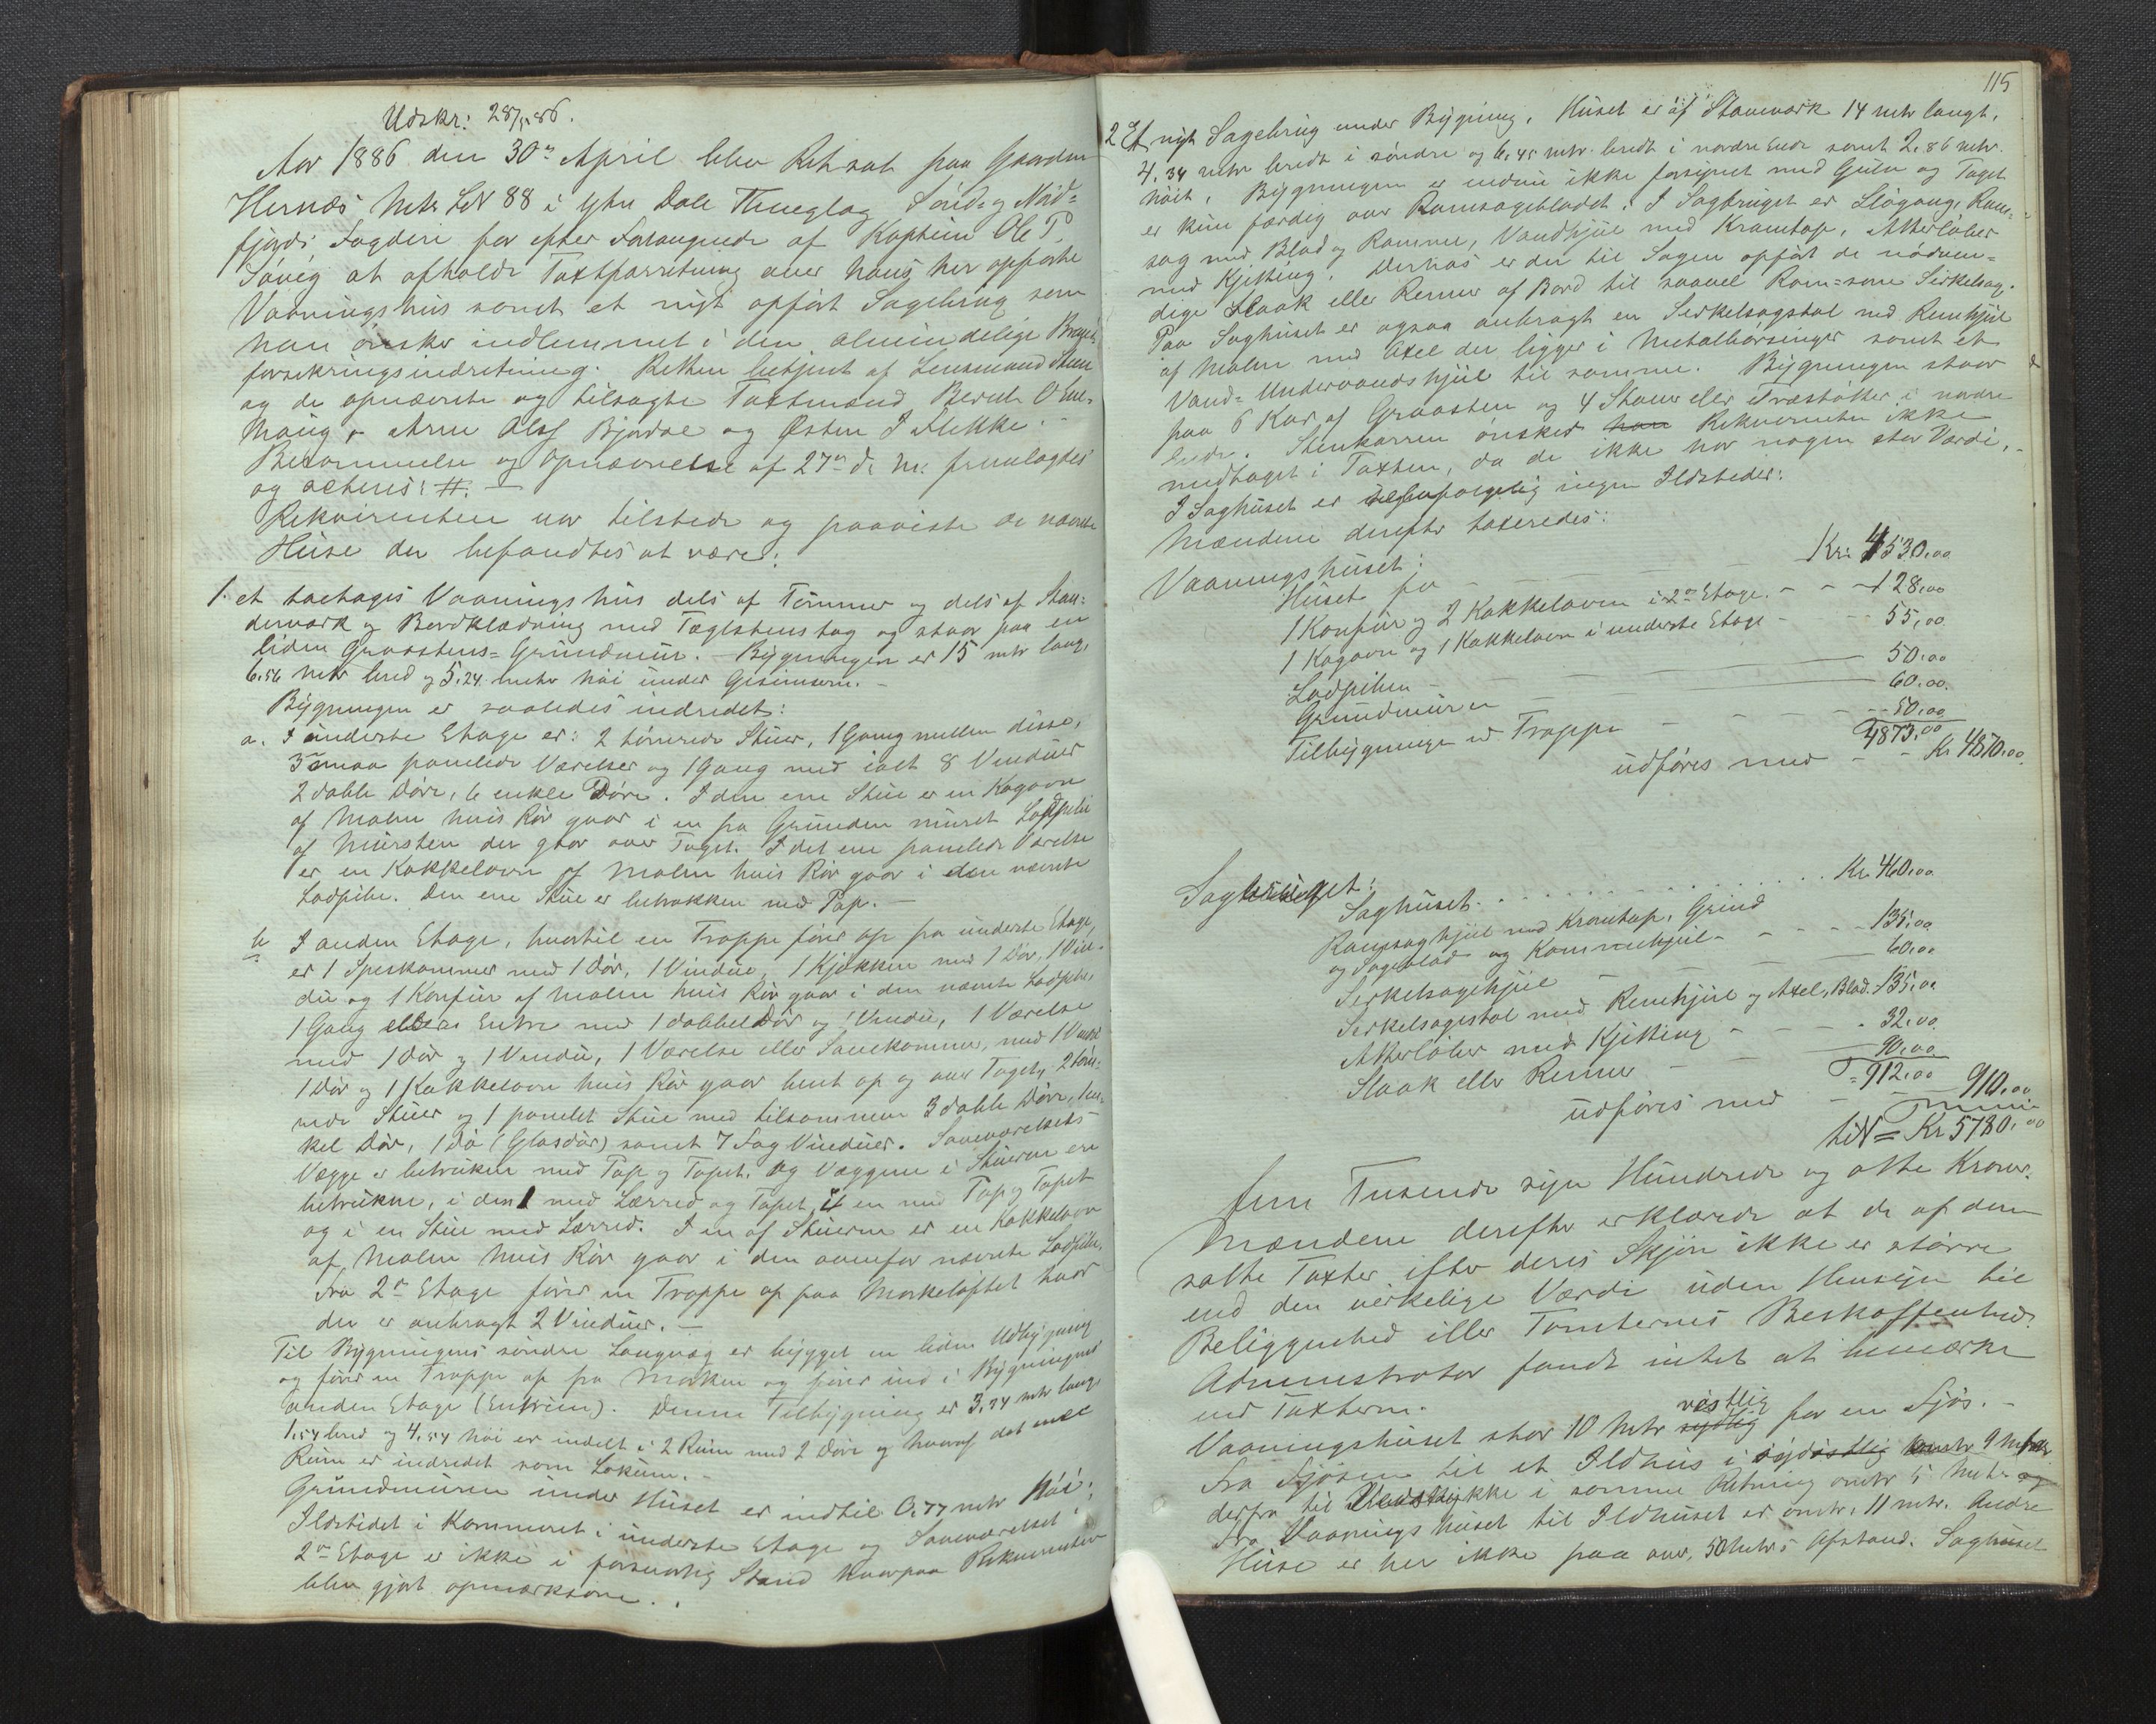 Udskr: 28/5 86.
Aar 1886 den 30te April blev Ret sat paa Gaarden
Hernæs Matr LN 88 i Ytre Dale Thinglag Sönd- og Nord-
fjords Fogderi for efter Forlangende af Kaptein Ole P.
Sövig at afholde Taxtforretning over hans her opførte
Vaaningshus samt et nyt opført Sagebrug som
han önsker indlemmet i den almindelige Brand-
forsikringsindretning. Retten betjent af Lensmand
og de opnævnte og tilsagte Taxtmænd Bernt O
Arne Olss Bjordal og Østen J Flekke. -
Berammelse og Opnævnelse af 27de d. M. fremlagdes
og acteres: #. -
Rekvirenten var tilstede og paaviste de nævnte
Huse der befandtes at være:
1. et toetages Vaaningshus dels af Tömmer og dels af Stan-
derværk og Bordklædning med Taglstenstag og staar paa en
liden Graastens-Grundmur. - Bygningen er 15 mtr lang,
6.56 mtr bred og 5.24 metr höi under Gesimsen. -
Bygningen er saaledes indredet:
a. I underste Etage er: 2 tömrede Stuer, 1 Gang mellem disse,
3 smaa panelede Værelser og 1 Gang med ialt 8 Vinduer
2 doble Döre, 6 enkle Döre. I den ene Stue er en Kogovn
af Malm hvis Rör gaar i en fra Grunden muret Ladpibe
af Mursten der gaar over Taget. I det ene panelede Værelse
er en Kakkelovn af Malm hvis Rör gaar i den nævnte
Ladpibe. Den ene Stue er betrukken med Pap. -
b I anden Etage, hvortil en Trappe förer op fra underste Etage,
er 1 Speskammer med 1 Dör, 1 Vindue, 1 Kjökken med 1 Dör, 1 Vin-
due og 1 Komfur af Malm hvis Rör gaar i den nævnte Ladpibe,
1 Gang eller Entre med 1 dobbel Dör og 1 Vindue, 1 Værelse
med 1 Dör og 1 Vindue, 1 Værelse eller Sovekammer, med 1 Vindue
1 Dör og 1 Kakkelovn hvis Rör gaar bent op og over Taget, 2 töm-
rede Stuer og 1 panelet Stue med tilsammen 3 doble Döre, 1 en-
kel Dör, 1 Dö (Glasdör) samt 7 Fag Vinduer. Soveværelsets
Vægge er betrukne med Pap og Tapet. og Væggene i Stuerne ere
betrukne, i den 1 med Lærred og Tapet, i en med Pap og Tapet
og i en Stue med Lærred. I en af Stuerne er en Kakkelovn
af Malm hvis Rör gaar i den ovenfor nævnte Ladpibe.
Fra 2den Etage förer en Trappe op paa Mörkeloftet hvor
der er anbragt 2 Vinduer. -
Til Bygningens söndre Langvæg er bygget en liden Udbygning
og förer en Trappe op fra Marken og förer ind i Bygningens
anden Etage (Entreen). Denne Tilbygning er 3.74 mtr lang,
1.54 bred og 4.54 höi er indelt i 2 Rum med 2 Döre og hvoraf det ene
Rum er indredet som Lokum. -
Grundmuren under Huset er indtil 0.77 mtr Höi;
Ildstedet i Kammeret i underste Etage og Soveværelset i
2den Etage er ikke i forsvarlig Stand hvorpaa Rekvirenten
blev gjort opmærksom.
115
2 Et nyt Sagebrug under Bygning. Huset er af Stavværk 14 mtr langt,
4.34 mtr bredt i söndre og 6.45 mtr bredt i nordre Ende samt 2.86 mtr
höit. Bygningen er endnu ikke forsynet med Gulv og Taget
er kun færdig over Ramsagebladet. I Sagbruget er Slögang, Ram-
sag med Blad og Ramme, Vandhjul med Kramtap, Atterløber
med Kjetting. Derhos er der til Sagen opfört de nödven-
dige Slaak eller Renner af Bord til saavel Ram- som Sirkelsag.
Paa Saghuset er ogsaa anbragt en Sirkelsagstol med Remhjul
af Malm med Axel der ligger i Metalbösninger samt et
Vand-Undervandshjul til samme. Bygningen staar
paa 6 Kar af Graasten og 4 Staver eller Træstötter i nordre
Ende. Stenkarrene önsker han Rekvirenten ikke
medtaget i Taxten, da de ikke har nogen stor Værdi. -
I Saghuset er selvfølgelig ingen Ildsteder.
Mændene derefter taxeredes:
Vaaningshuset:
Huset for - - - Kr. 4530.00
1 Komfur og 2 Kakkelovne i 2den Etage - - - 128.00
1 Kogovn og 1 Kakkelovn i underste Etage - - 55.00
Ladpiben - - - 50.00
Grundmuren - - 60.00
Tilbygningen m Trappe - - - 50.00
4873.00
udföres med - - Kr 4870.00
Sagbruget:
Saghuset . . . . . Kr. 460.00
Ramsaghjul med Kramtap, Grind
og Sageblad og Kammehjul - - - 135.00
Sirkelsagehjul - - 60.00
Sirkelsagestol med Remhjul og Axel, Blad. 135.00
Atterløber med Kjetting - - - 32.00
Slaak eller Renner - - 90.00
= 912.00
udföres med - - 910.00
til = Kr 5780.00
Fem Tusende syv Hundrede og otte Kroner.
Mændene derefter erklærede at de af dem
satte Taxter efter deres Skjön ikke er större
end den virkelige Værdi uden Hensyn til
Beliggenhed eller Tomternes Beskaffenhed.
Administrator fandt intet at bemærke
ved Taxterne.
Vaaningshuset staar 10 Mtr sydlig vestlig for en Sjös. -
Fra Sjösen til et Ildhus i sydöstlig omtr 9 Mtr
derfra til i samme Retning omtr 5 Mtr og
fra Vaaningshuset til Ildhuset er omtr. 11 mtr. Andre
Huse er her ikke paa over 50 Metrs Afstand. Saghuset